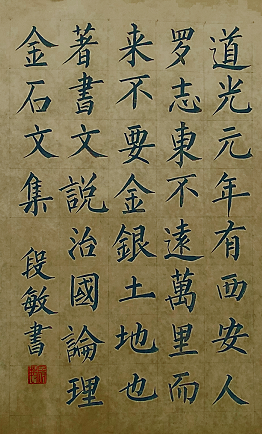 道光元年有西安人
罗志東不遠萬里而
来不要金銀土地也
著書文説治國論理
金石文集
段敏書